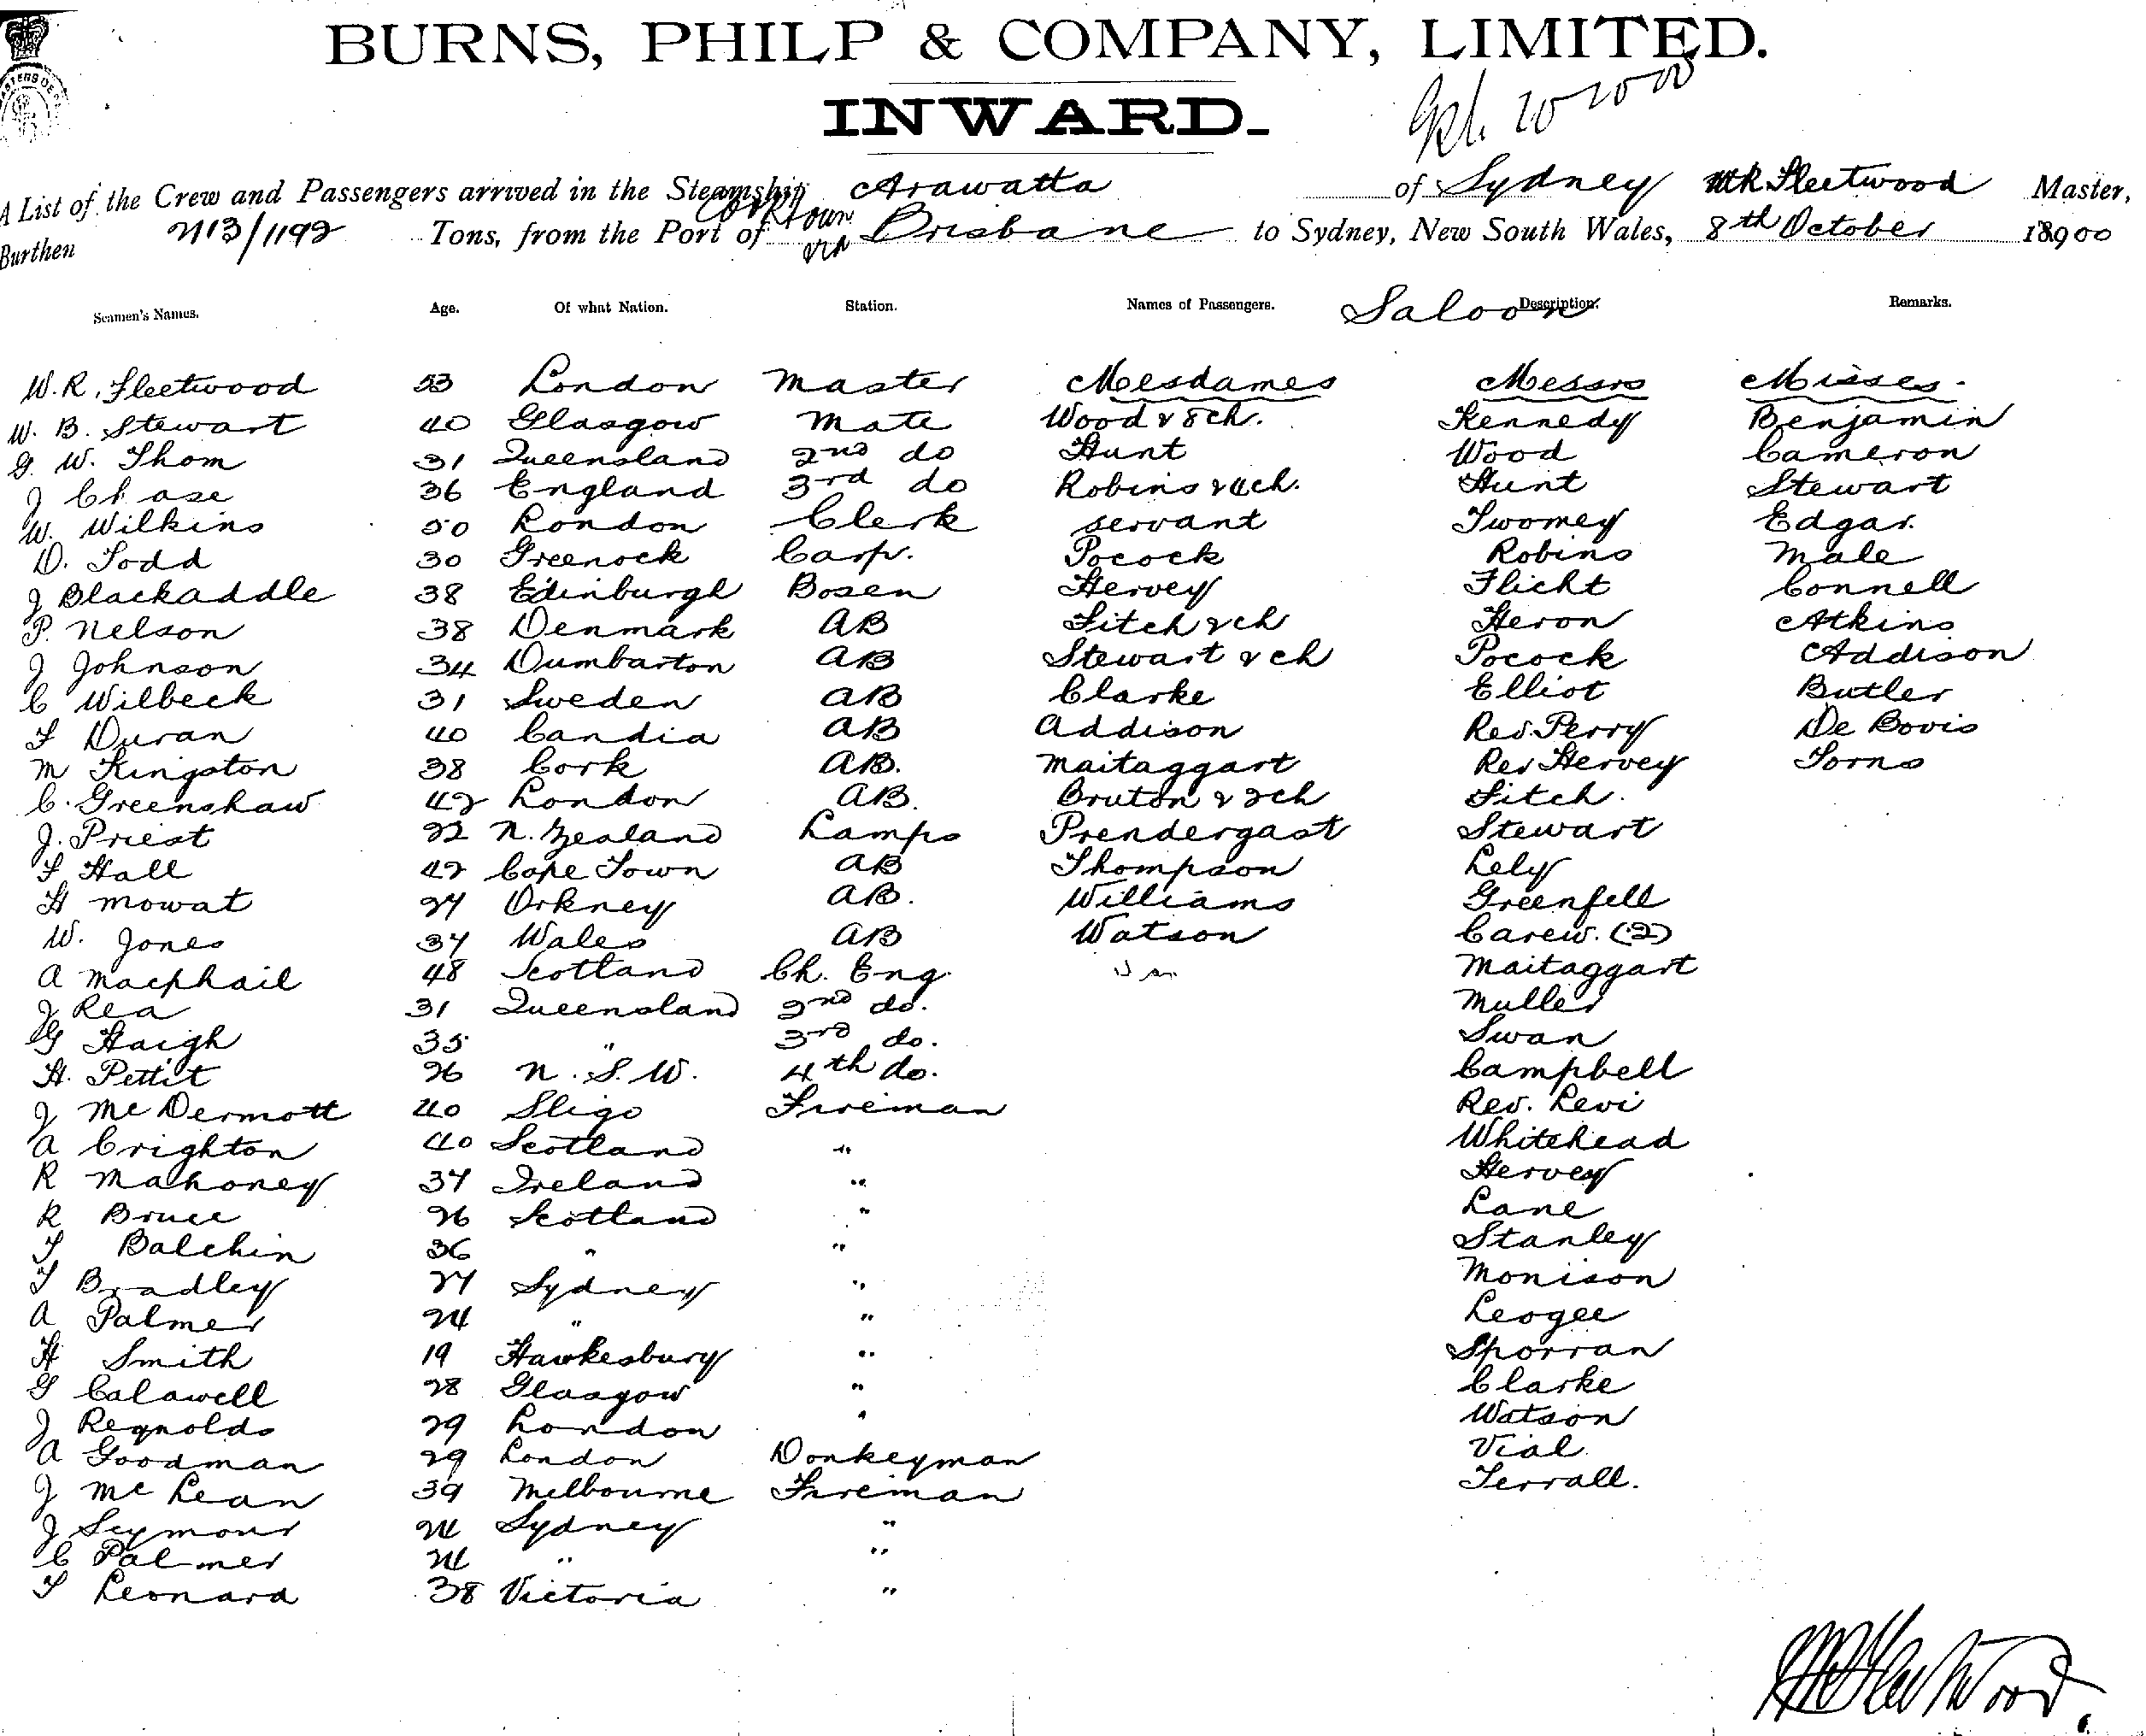 BURNS, PHILP & COMPANY, LIMITED.
INWARD.
A List of the Crew and Passengers arrived in the Steamship Arawatta of Sydney WR Fleetwood Master,
Burthen 2113/1192 Tons, from the Port of Cooktown via Brisbane to Sydney, New South Wales, 8th October 1900
Seamen's Names. Age. Of what Nation. Station. Names of Passengers. Saloon Description. Remarks.
W.R. Fleetwood 53 London Master Mesdames Messrs Misses.
W. B. Stewart 40 Glasgow Mate Wood & 8ch. Kennedy Benjamin
G. W. Thom 31 Queensland 2nd do Hunt Wood Cameron
J Chase 36 England 3rd do Robins & 4ch. Hunt Stewart
W. Wilkins 50 London Clerk servant Twomey Edgar.
D. Todd 30 Greenock Carp. Pocock Robins Male
J Blackaddle 38 Edinburgh Bosen Hervey Flicht Connell
P. Nelson 38 Denmark AB Fitch & ch Heron Atkins
J Johnson 34 Dumbarton AB Stewart & ch Pocock Addison
C Wilbeck 31 Sweden AB Clarke Elliot Butler
F Duran 40 Candia AB Addison Rev. Perry De Bovis
M Kingston 38 Cork AB. Maitaggart Rev Hervey Torns
C. Greenshaw 42 London AB. Bruton & 2ch Fitch.
J. Priest 22 N. Zealand Lamps Prendergast Stewart
F Hall 42 Cape Town AB Thompson Lely
H Mowat 27 Orkney AB. Williams Greenfell
W. Jones 37 Wales AB Watson Carew. (2)
A Macphail 48 Scotland Ch. Eng. Maitaggart
J Rea 31 Queensland 2nd do. Muller
G Haigh 35 " 3rd do. Swan
H. Pettit 26 N. S. W. 4th do. Campbell
J McDermott 40 Sligo Fireman Rev. Levi
A Crighton 40 Scotland " Whitehead
R Mahoney 37 Ireland " Hervey
R Bruce 26 Scotland " Lane
T Balchin 36 " " Stanley
T Bradley 27 Sydney " Monison
A Palmer 24 " " Leogee
H Smith 19 Hawkesbury " Sporran
G Calawell 28 Glasgow " Clarke
J Reynolds 29 London " Watson
A Goodman 29 London Donkeyman Vial.
J McLean 39 Melbourne Fireman Terrall.
J Seymour 24 Sydney "
C Palmer 24 " "
T Leonard 38 Victoria "
WR Fleetwood.